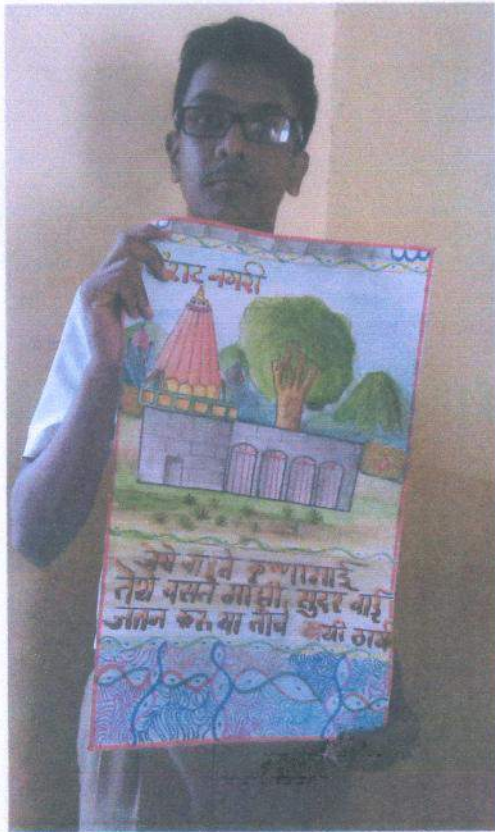 नगरी
जेथे वाहते कृष्णामाई
तेथे वसते माझी, सुंदर वाई
जतन करू या तीचे